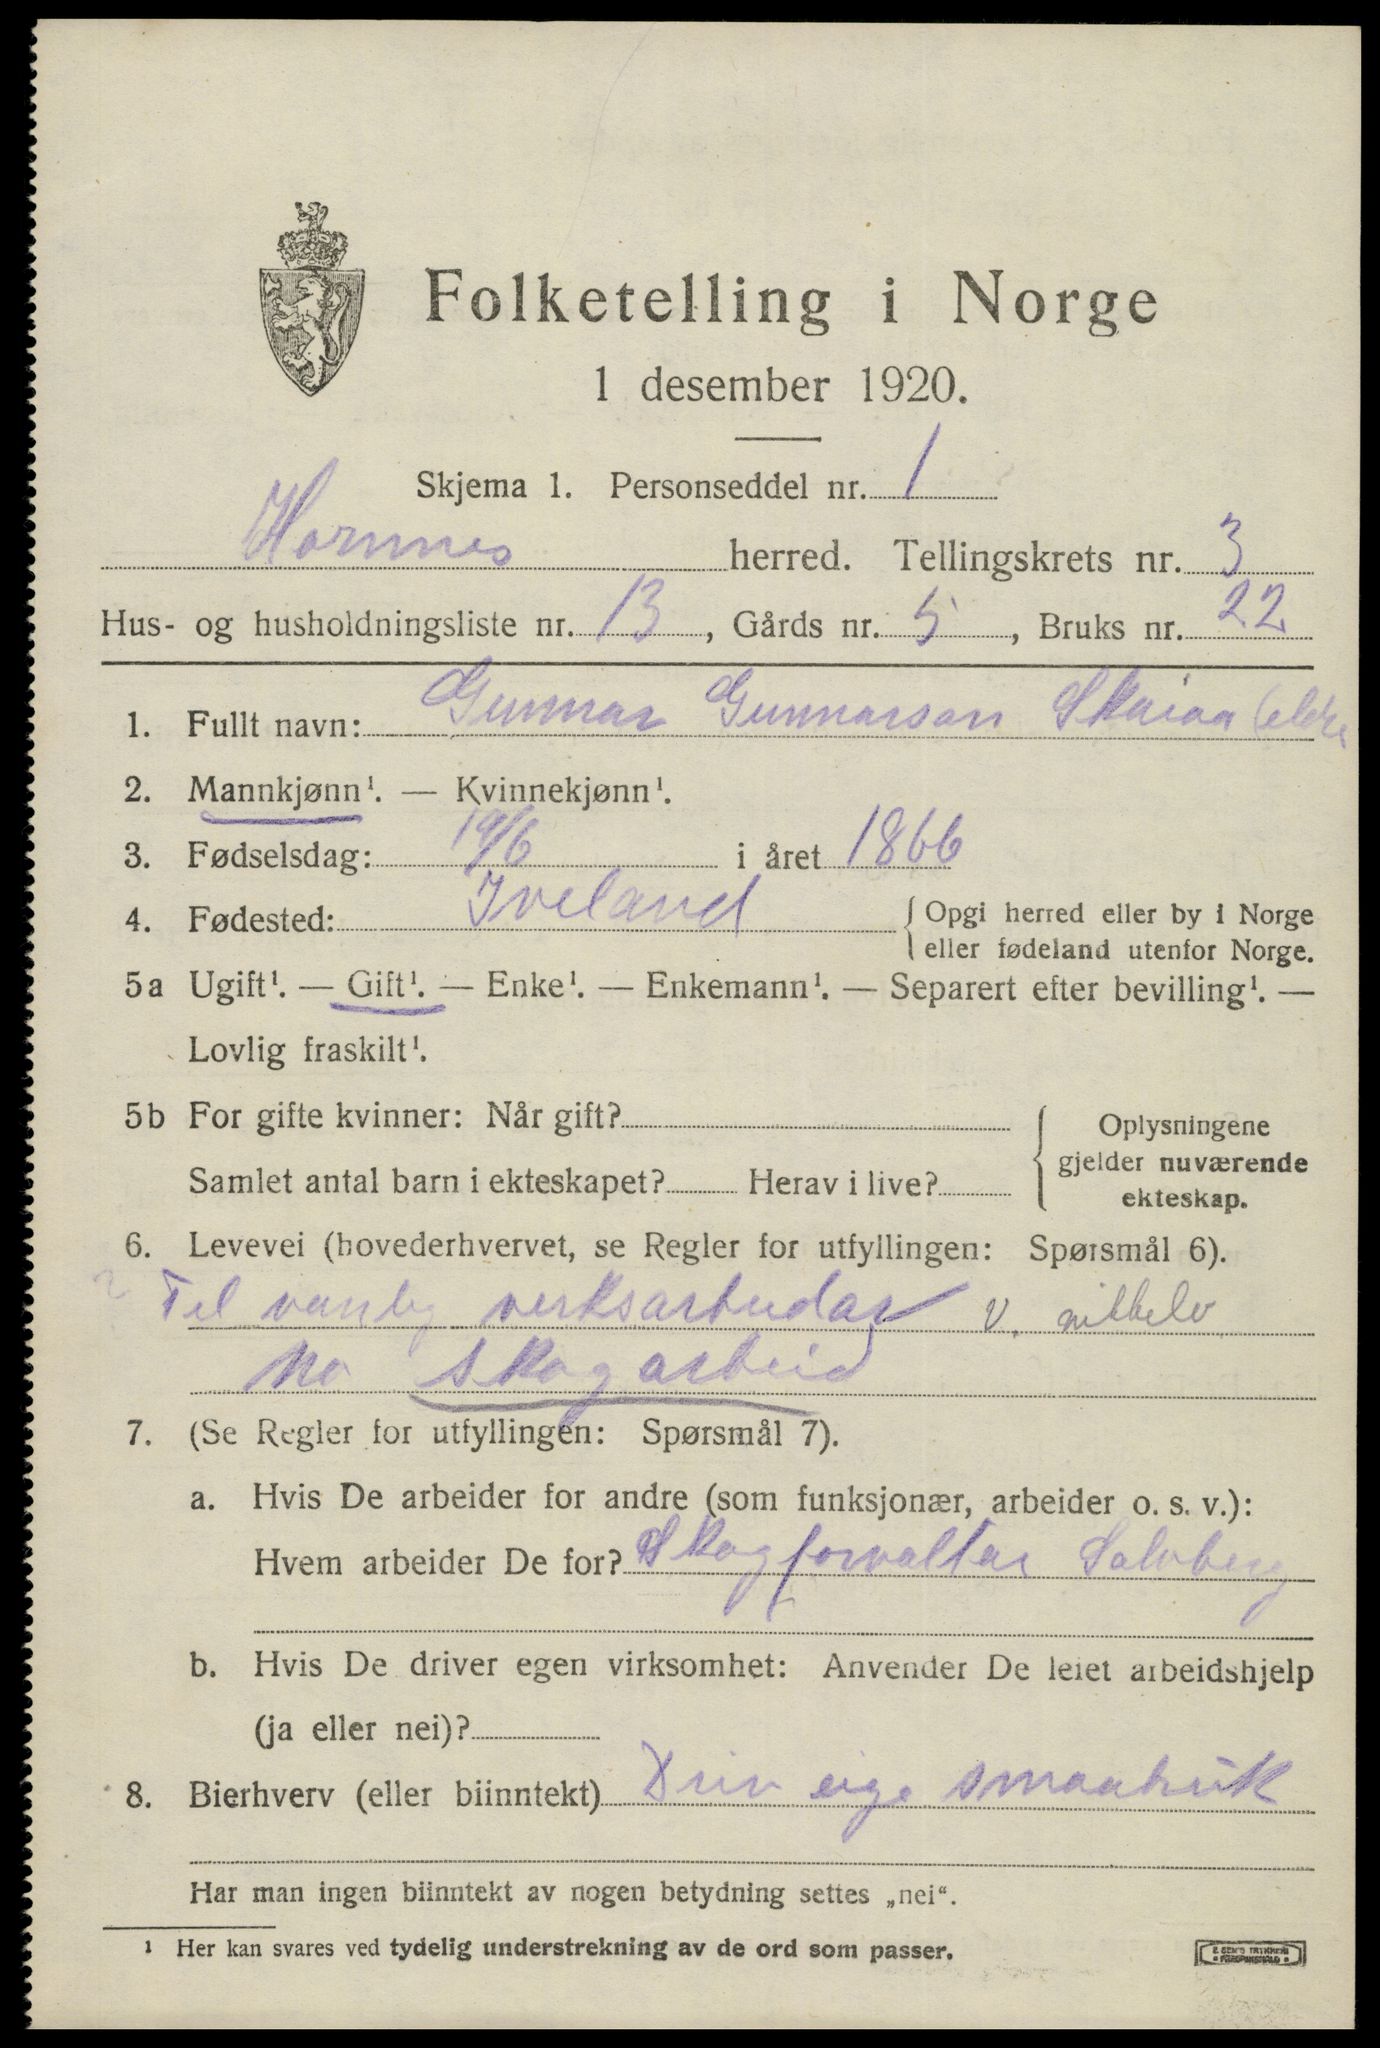 Folketelling i Norge
1 desember 1920.
Skjema 1. Personseddel nr. 1
Hornnes herred. Tellingskrets nr. 3
Hus- og husholdningsliste nr. 13, Gårds nr. 5, Bruks nr. 22
1. Fullt navn: Gunnar Gunnarson Skaiaa (eldre
2. Mannkjønn¹. — Kvinnekjønn¹.
3. Fødselsdag: 19/6 i året 1866
4. Fødested: Iveland { Opgi herred eller by i Norge
eller fødeland utenfor Norge.
5a Ugift¹. — Gift¹. — Enke¹. — Enkemann¹. — Separert efter bevilling¹. —
Lovlig fraskilt¹.
5b For gifte kvinner: Når gift?
Samlet antal barn i ekteskapet? Herav i live?
Oplysningene
gjelder nuværende
ekteskap.
6. Levevei (hovederhvervet, se Regler for utfyllingen: Spørsmål 6).
Til vanleg verksarbeidar v. nikkelv
no skogarbeid
7. (Se Regler for utfyllingen: Spørsmål 7).
a. Hvis De arbeider for andre (som funksjonær, arbeider o. s. v.):
Hvem arbeider De for? Skogforvaltar Salvberg
b. Hvis De driver egen virksomhet: Anvender De leiet arbeidshjelp
(ja eller nei)?
8. Bierhverv (eller biinntekt) Driv eige smaabruk
Har man ingen biinntekt av nogen betydning settes „nei“.
¹ Her kan svares ved tydelig understrekning av de ord som passer.